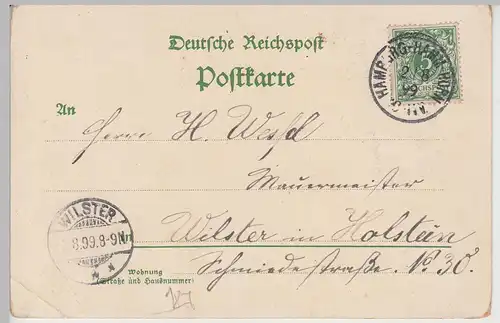 Deutsche Reichspost
Postkarte
An
Herrn H. Wessel
Mauermeister
in Wilster in Holstein
Schmiedestraße. No 30.
Wohnung
(Straße und Hausnummer)
WILSTER
8.99.8-9N
HAMBURG
5